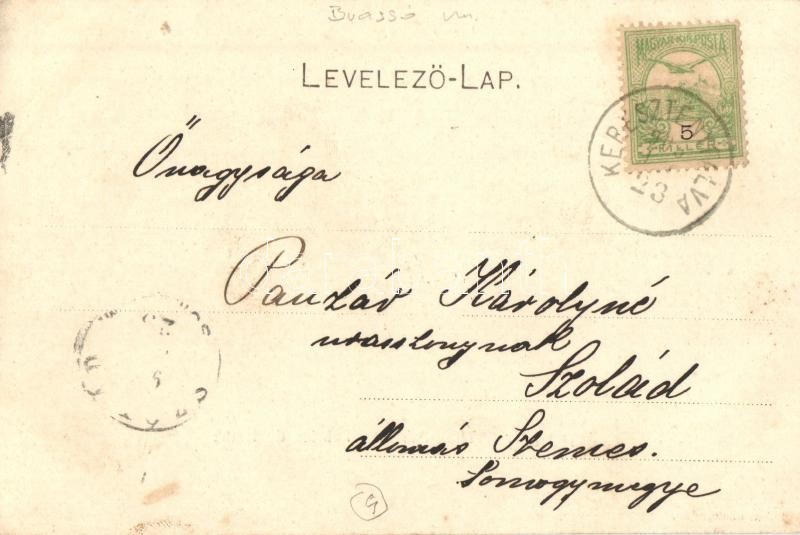 Brassó vm.
LEVELEZŐ-LAP.
MAGYAR KIR. POSTA
5
FILLÉR
KERESZTÉNYFALVA
Őnagysága
Panzár Károlyné
urasszonynak
Szolád
állomás Szemes.
Somogymegye